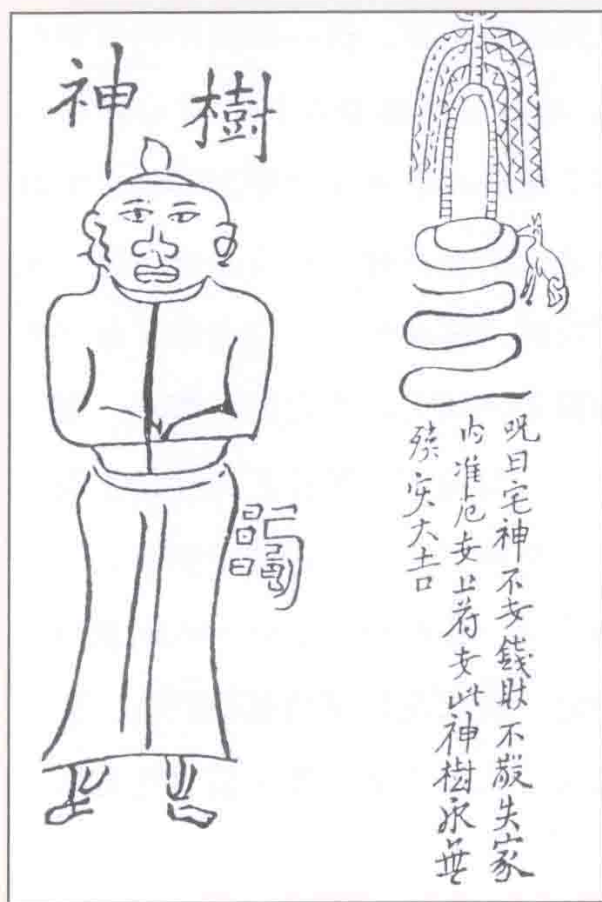 樹神
呪曰宅神不安錢財不散失家
内准厄安上苻安此神樹永無
大吉